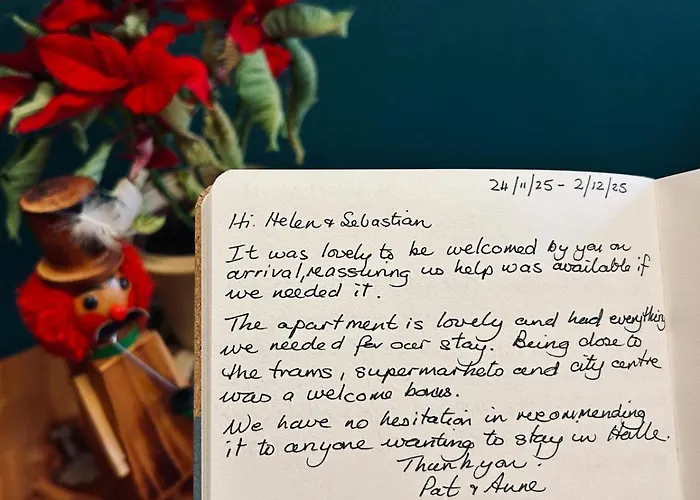 24/11/25 - 2/12/25
Hi. Helen & Sebastian
It was lovely to be welcomed by you on
arrival, reassuring us help was available if
we needed it.
The apartment is lovely and had everything
we needed for our stay. Being close to
the trams, supermarkets and city centre
was a welcome bonus.
We have no hesitation in recommending
it to anyone wanting to stay in Halle.
Thank you.
Pat & Anne